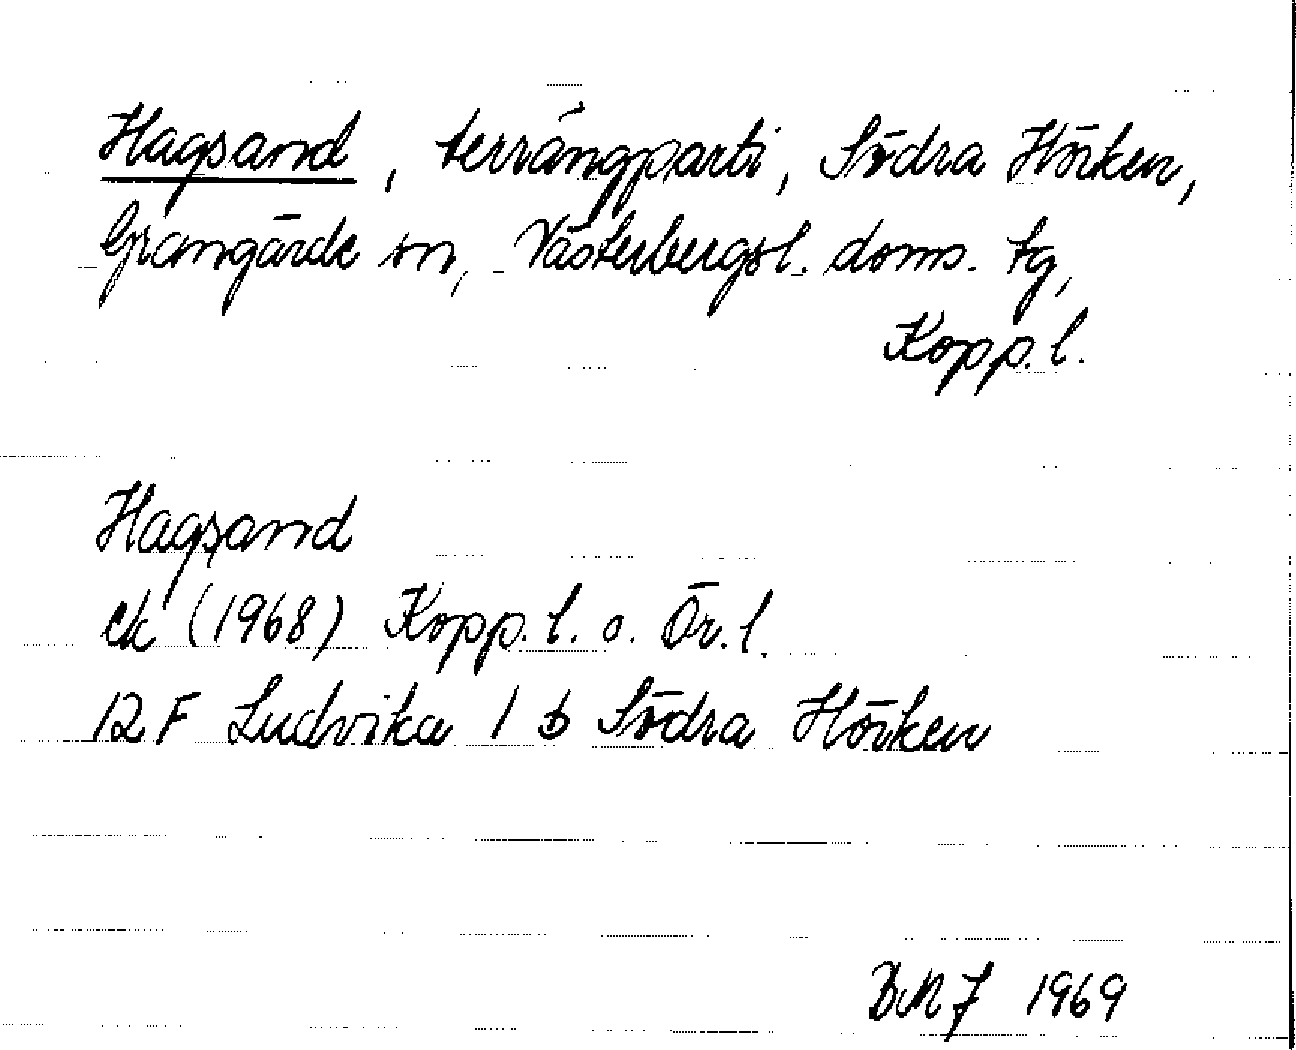 Hagsand, terrängparti, Södra Hörken,
Grangärde sn, Västerbergsl. doms. tg,
Kopp. l.
Hagsand
ek (1968) Kopp. l. o. Ör. l.
12 F Ludvika 1 b Södra Hörken
BMJ 1969